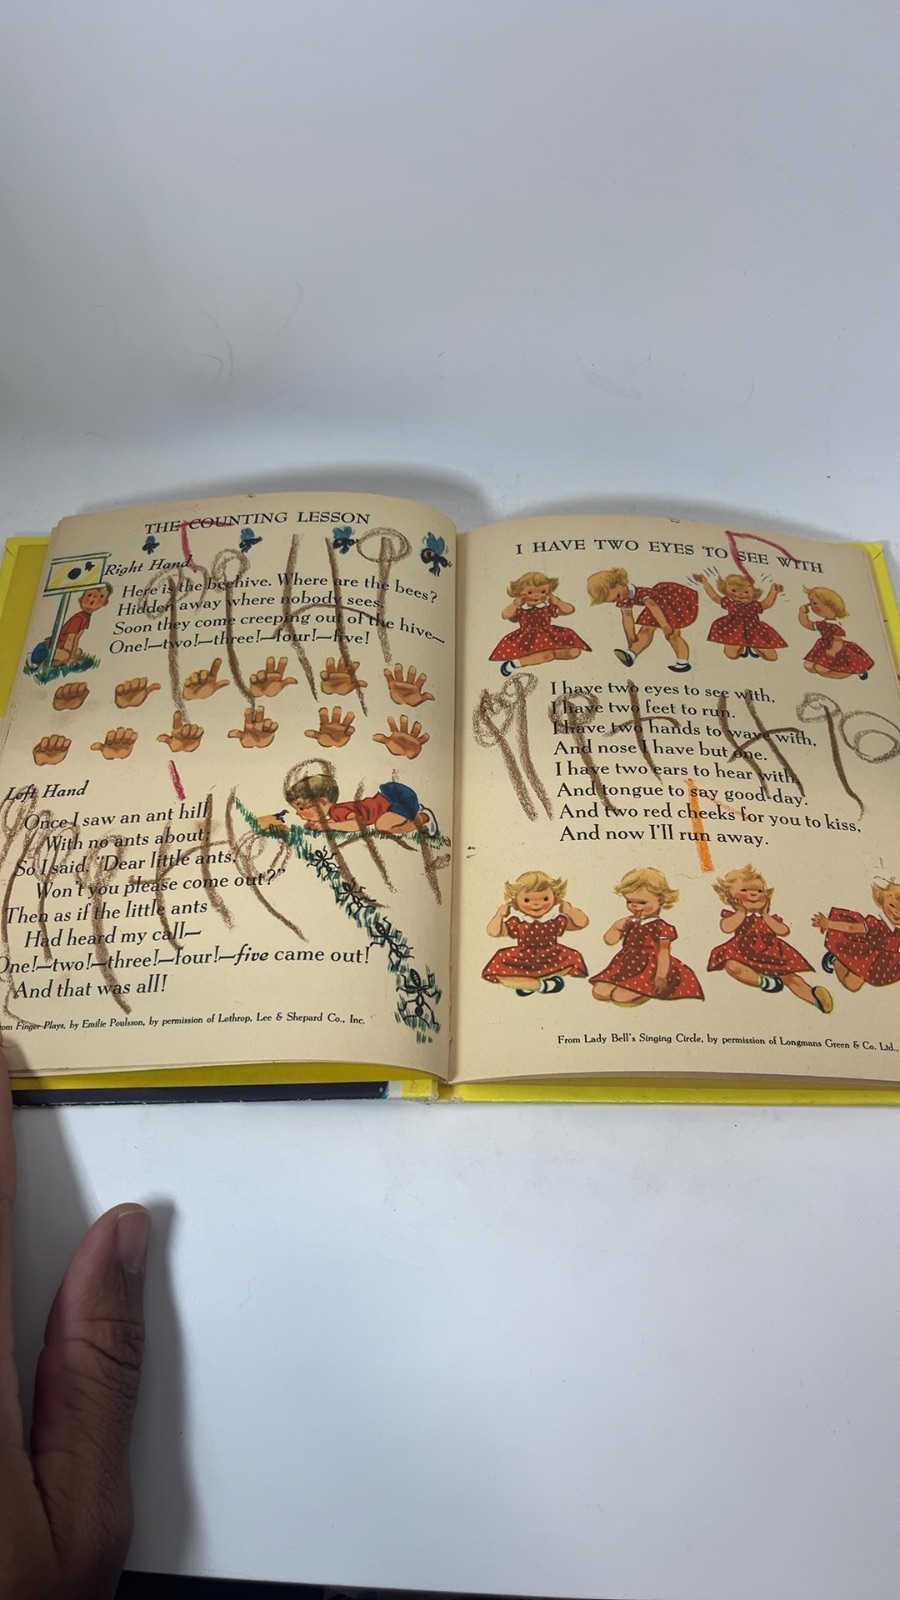 THE COUNTING LESSON
Right Hand
Here is the beehive. Where are the bees?
Hidden away where nobody sees.
Soon they come creeping out of the hive—
One!—two!—three!—four!—five!
Left Hand
Once I saw an ant hill
With no ants about;
So I said, "Dear little ants,
Won't you please come out?"
Then as if the little ants
Had heard my call—
One!—two!—three!—four!—five came out!
And that was all!
From Finger Plays, by Emilie Poulsson, by permission of Lothrop, Lee & Shepard Co., Inc.
I HAVE TWO EYES TO SEE WITH
I have two eyes to see with,
I have two feet to run.
I have two hands to wave with,
And nose I have but one.
I have two ears to hear with,
And tongue to say good-day.
And two red cheeks for you to kiss,
And now I'll run away.
From Lady Bell's Singing Circle, by permission of Longmans Green & Co. Ltd.,